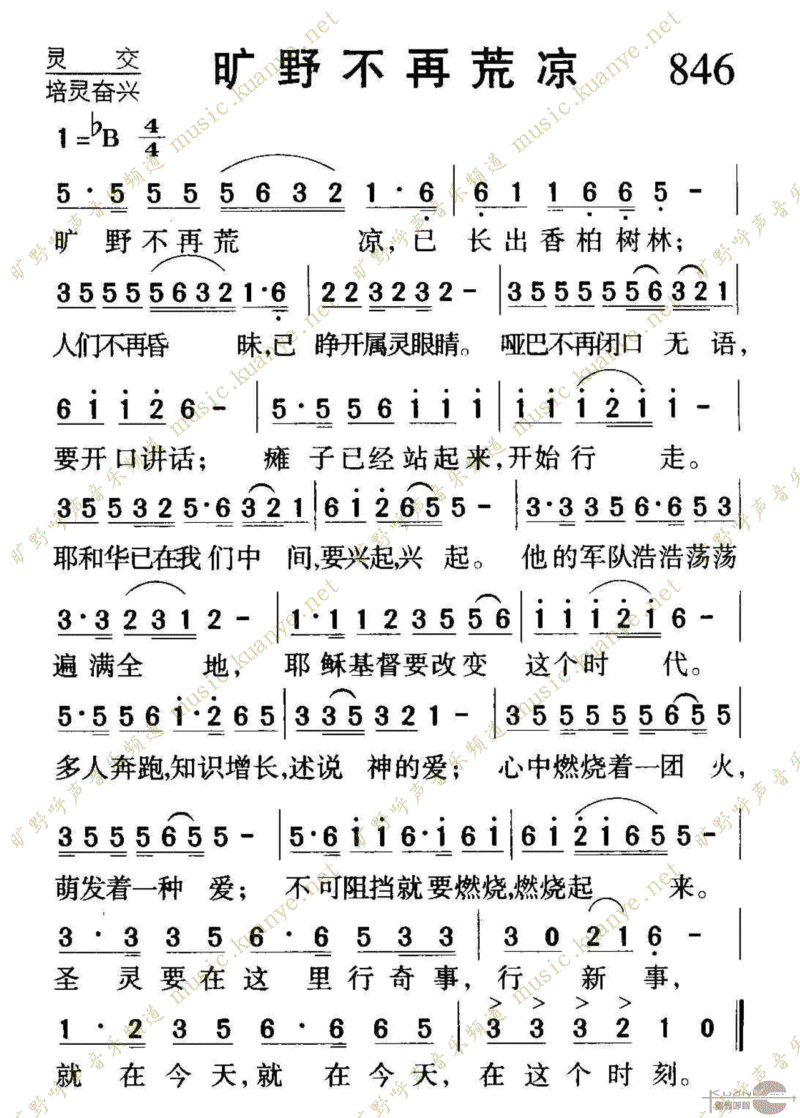 灵 交
培灵奋兴
旷野不再荒凉 846
1=♭B 4/4
5·5 55 5632 1·6 | 61 166 5 -
旷 野不再荒 凉,已 长出香柏树林;
3555 5632 1·6 | 223232 - | 3555 55632 21
人们不再昏 昧,已 睁开属灵眼睛。 哑巴不再闭口 无语,
6 i i 2 6 - | 5·5 56 i i i | i i i 2 i i -
要开口讲话; 瘫 子已经站起来,开始行 走。
355532 5·6 321 | 6 i 2 655 - | 3·335 6·653
耶和华已在我们中 间,要兴起,兴 起。 他的军队浩浩荡荡
3·3 231 2 - | 1·1 12 3556 | i i i 2 i 6 -
遍满全 地, 耶稣基督要改变 这个时 代。
5·556 i·265 | 335321 - | 3555 5565 5
多人奔跑,知识增长,述说 神的爱; 心中燃烧着一团 火,
3555 5655 - | 5·6 i i 6·i 6 i | 6 i 2 i 65 5 -
萌发着一种 爱; 不可阻挡就要燃烧,燃烧起 来。
3·3 335 6·6 533 | 30 21 6 -
圣 灵要在这 里行奇事,行 新 事,
1·2 35 6·6 65 | 3 3 3 2 10
就 在今天,就 在今天,在这个时刻。
旷野呼声音乐频道 music.kuanye.net